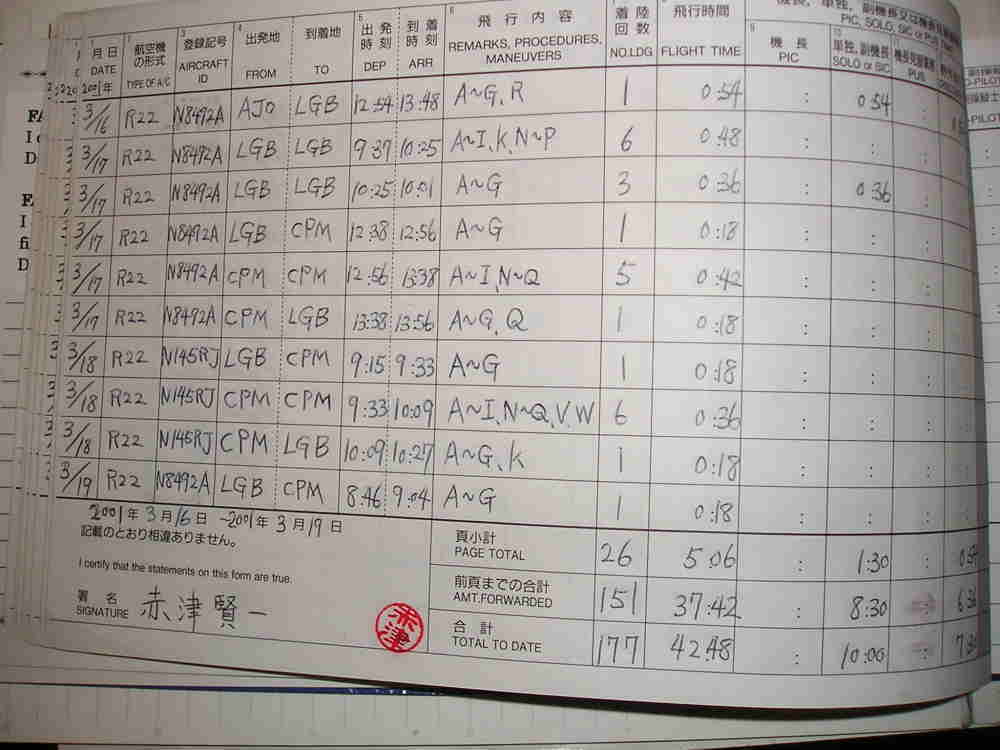 機長, 単独, 副機長又は機長
PIC, SOLO, SIC or PUS TIME
月日 DATE 航空機の形式 TYPE OF A/C 登録記号 AIRCRAFT ID 出発地 FROM 到着地 TO 出発時刻 DEP 到着時刻 ARR 飛行内容 REMARKS, PROCEDURES, MANEUVERS 着陸回数 NO.LDG 飛行時間 FLIGHT TIME 機長 PIC 単独, 副機長 SOLO or SIC PUS
2001年
3/16 R22 N8492A AJO LGB 12:54 13:48 A~G, R 1 0:54 : 0:54
3/17 R22 N8492A LGB LGB 9:37 10:25 A~I, K, N~P 6 0:48 : :
3/17 R22 N8492A LGB LGB 10:25 10:01 A~G 3 0:36 : 0:36
3/17 R22 N8492A LGB CPM 12:38 12:56 A~G 1 0:18 : :
3/17 R22 N8492A CPM CPM 12:56 13:38 A~I, N~Q 5 0:42 : :
3/17 R22 N8492A CPM LGB 13:38 13:56 A~G, Q 1 0:18 : :
3/18 R22 N145RJ LGB CPM 9:15 9:33 A~G 1 0:18 : :
3/18 R22 N145RJ CPM CPM 9:33 10:09 A~I, N~Q, V, W 6 0:36 : :
3/18 R22 N145RJ CPM LGB 10:09 10:27 A~G, K 1 0:18 : :
3/19 R22 N8492A LGB CPM 8:46 9:04 A~G 1 0:18 : :
2001年3月16日 ~2001年3月19日
記載のとおり相違ありません。
I certify that the statements on this form are true.
署名 SIGNATURE 赤津賢一
赤津
頁小計 PAGE TOTAL 26 5:06 : 1:30
前頁までの合計 AMT.FORWARDED 151 37:42 : 8:30 6:36
合計 TOTAL TO DATE 177 42:48 : 10:00 7:30